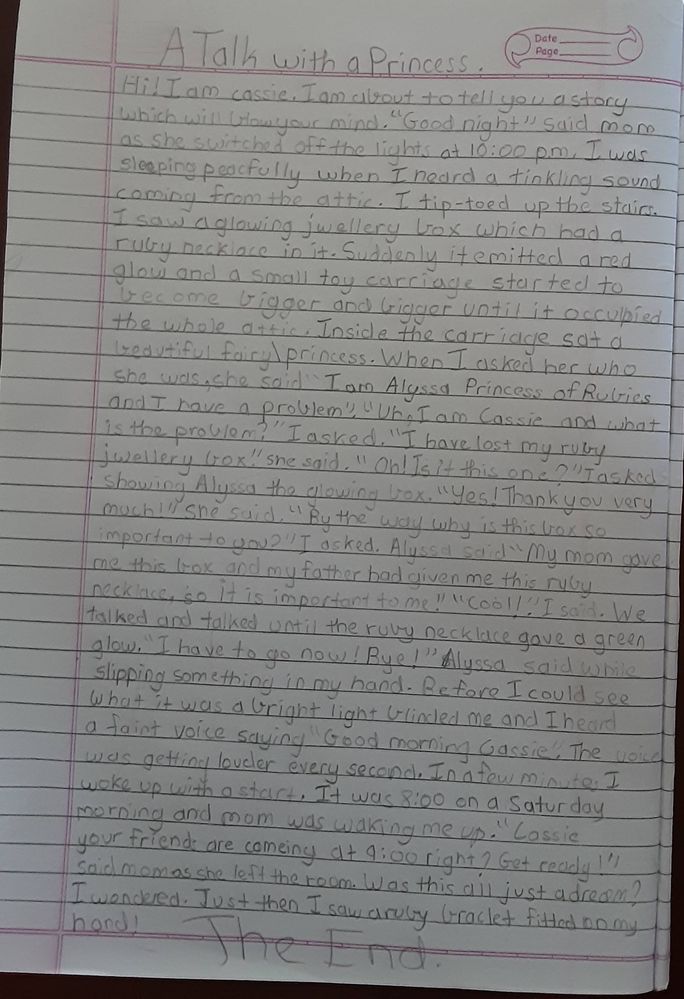 Date
Page
A Talk with a Princess.
Hi! I am cassie. I am about to tell you a story
which will blow your mind. "Good night" said mom
as she switched off the lights at 10:00 pm. I was
sleeping peacfully when I heard a tinkling sound
coming from the attic. I tip-toed up the stairs.
I saw a glowing jwellery box which had a
ruby necklace in it. Suddenly it emitted a red
glow and a small toy carriage started to
become bigger and bigger until it occupied
the whole attic. Inside the carriage sat a
beautiful fairy\princess. When I asked her who
she was, she said "I am Alyssa Princess of Rubies
and I have a problem". "Uh, I am Cassie and what
is the problem?" I asked. "I have lost my ruby
jwellery box!" she said. "Oh! Is it this one?" I asked
showing Alyssa the glowing box. "Yes! Thank you very
much!" she said. "By the way why is this box so
important to you?" I asked. Alyssa said "My mom gave
me this box and my father had given me this ruby
necklace, so it is important to me!" "Cool!" I said. We
talked and talked until the ruby necklace gave a green
glow. "I have to go now! Bye!" Alyssa said while
slipping something in my hand. Before I could see
what it was a bright light blinded me and I heard
a faint voice saying "Good morning Cassie". The voice
was getting louder every second. In a few minute, I
woke up with a start. It was 8:00 on a Saturday
morning and mom was waking me up. "Cassie
your friends are comeing at 9:00 right? Get ready!"
said mom as she left the room. Was this all just a dream?
I wondered. Just then I saw a ruby braclet fitted on my
hand!
The End.